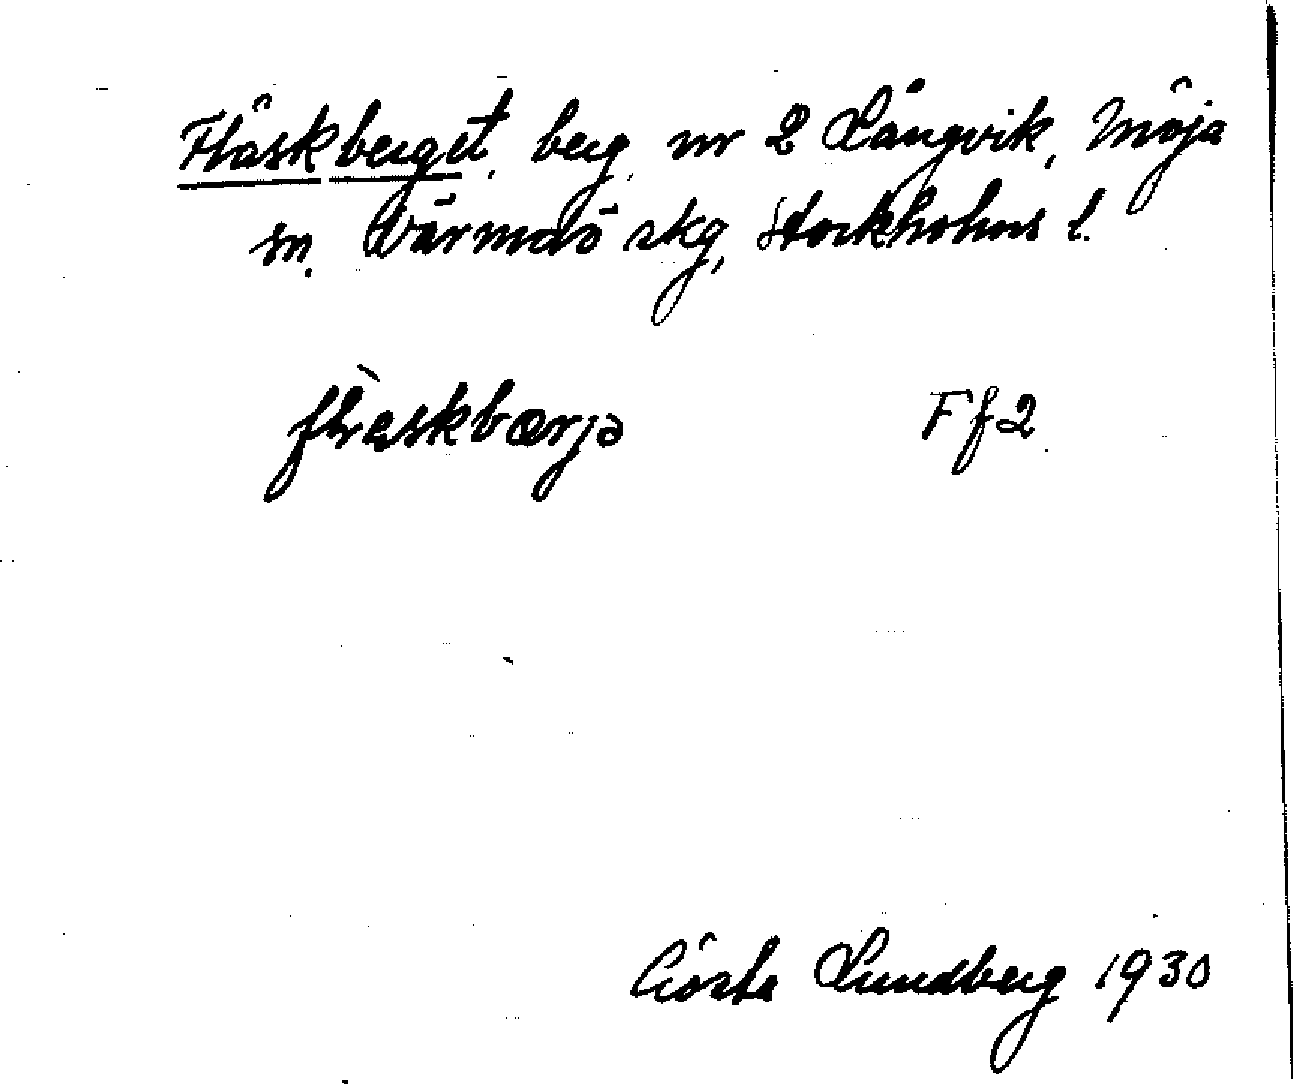 Fläskberget, berg, nr 2 Långvik, Möja
sn. Värmdö skg, Stockholms l.
flæskbærjə Ff2.
Gösta Lundberg 1930